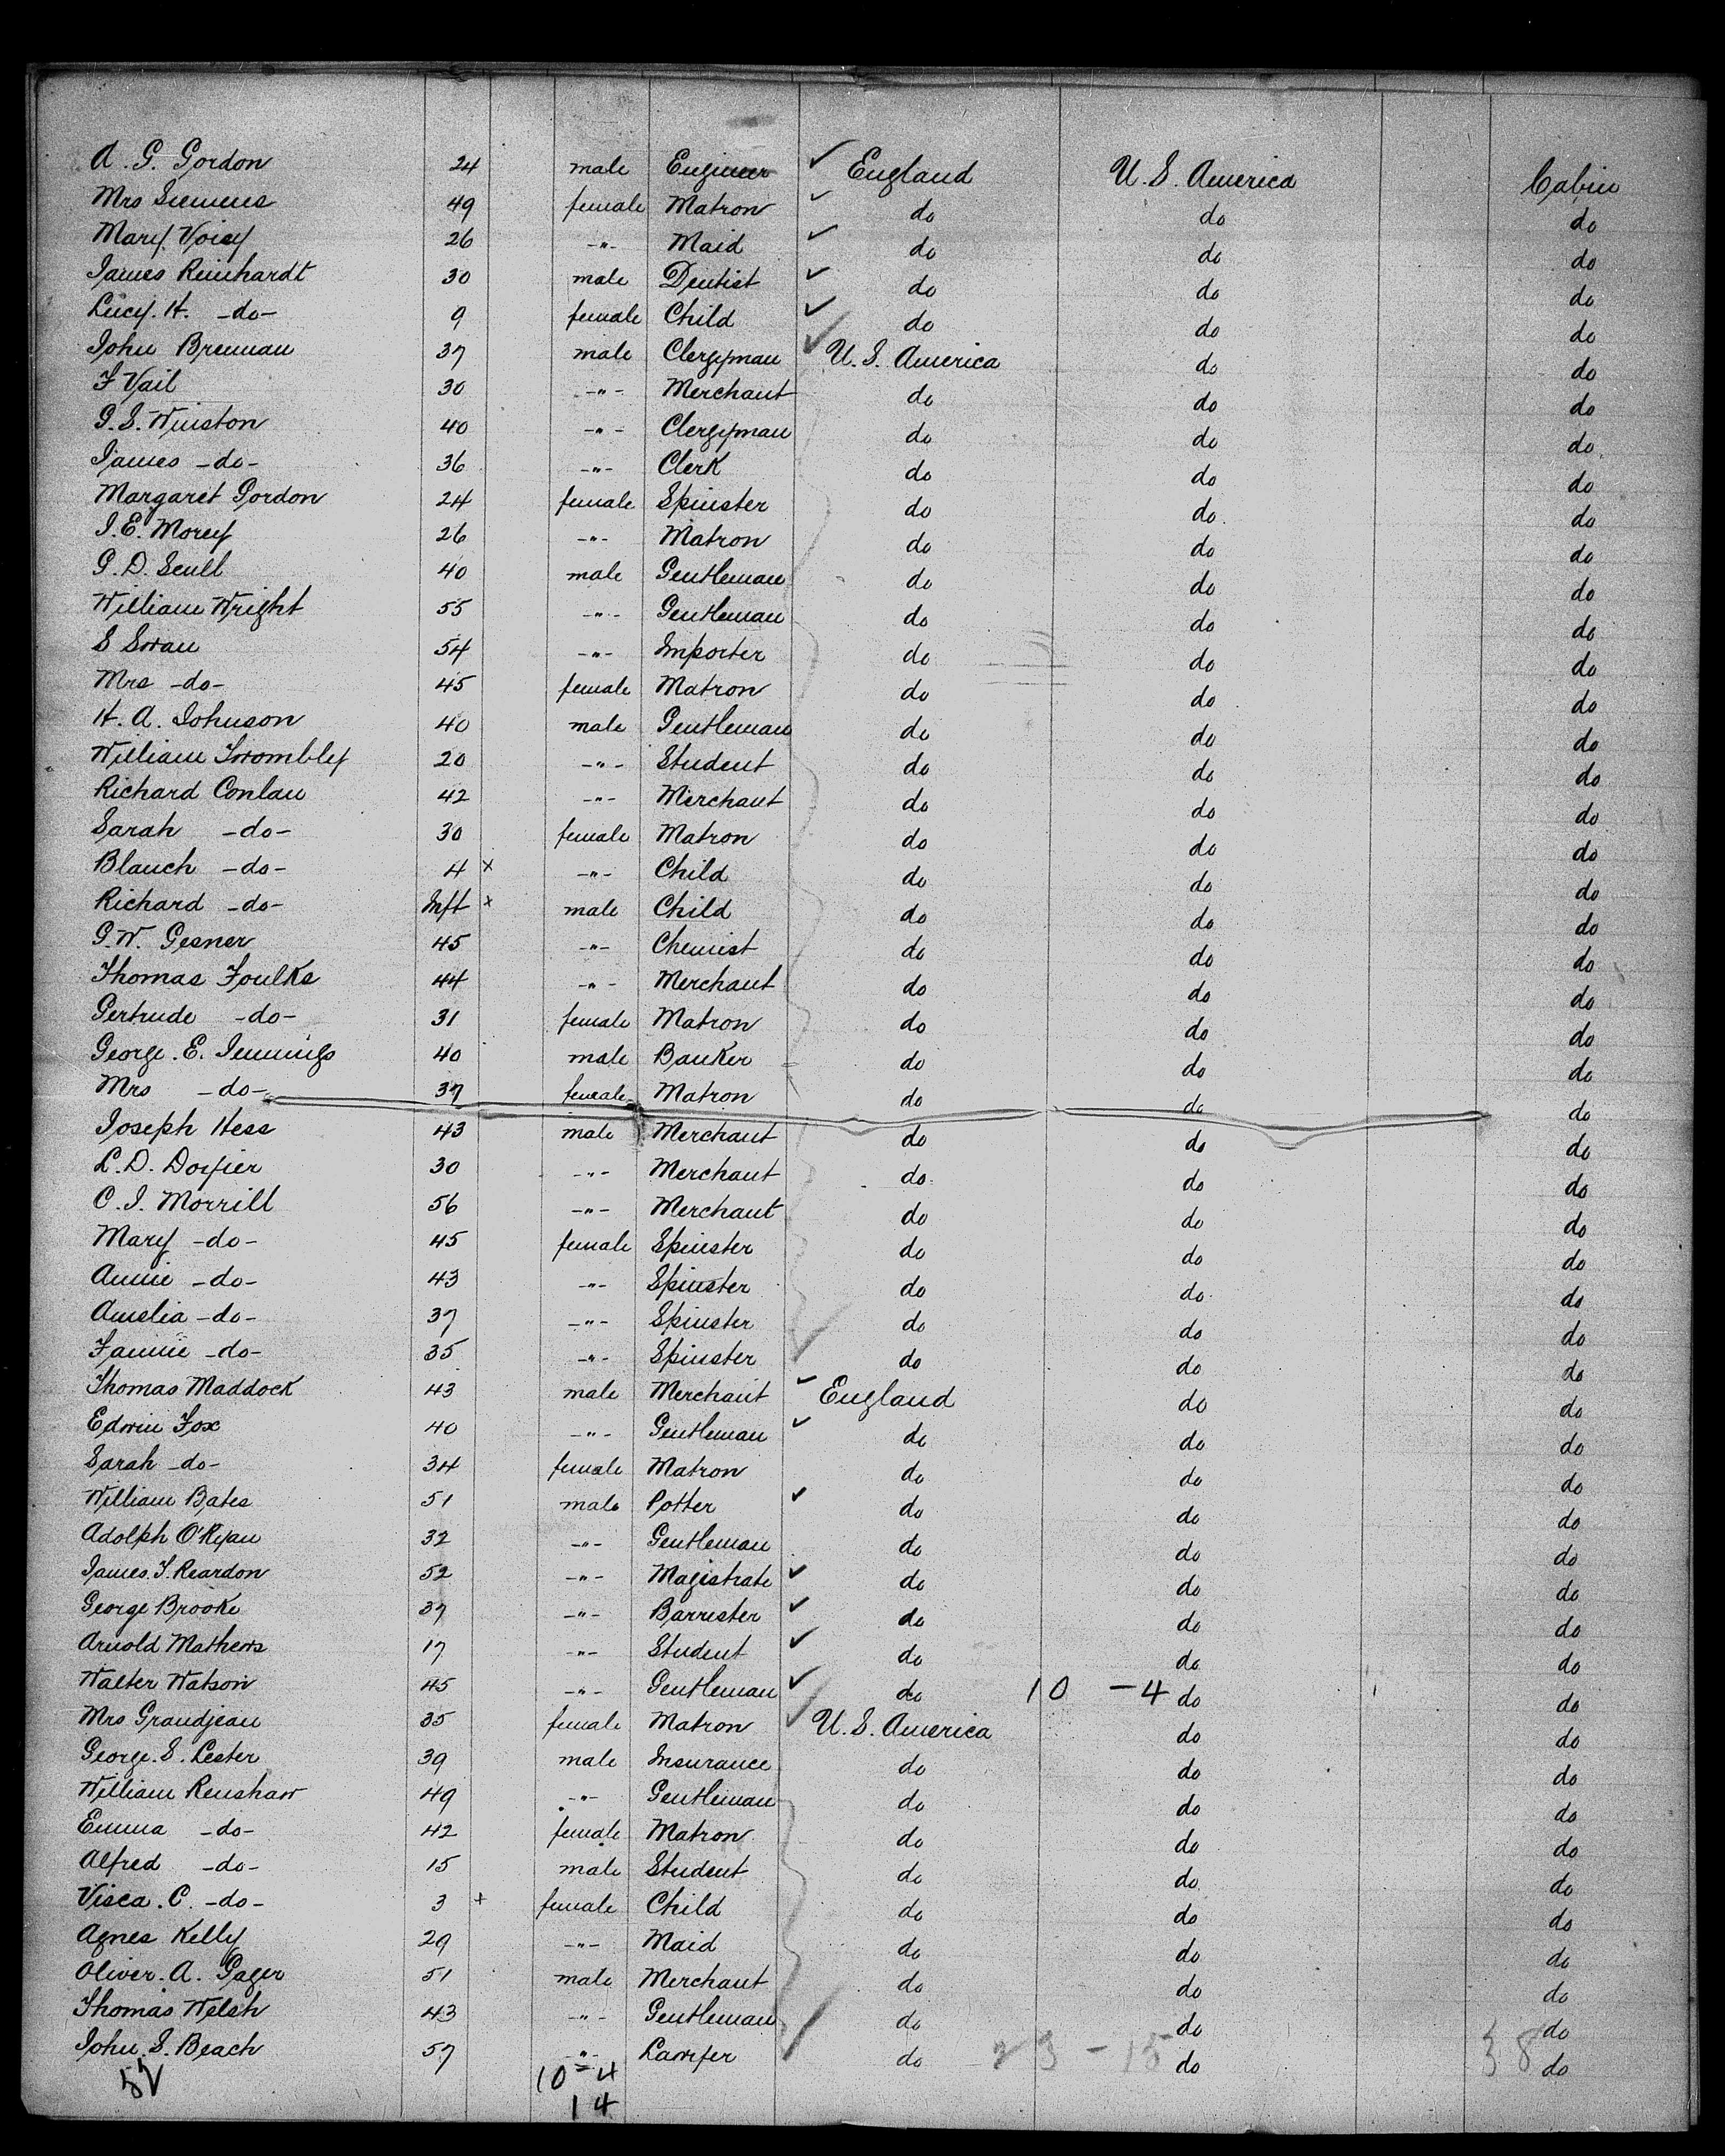 A. G. Gordon 24 male Engineer ✓ England U. S. America Cabin
Mrs Siemens 49 female Matron ✓ do do do
Mary Voisey 26 -"- Maid ✓ do do do
James Reinhardt 30 male Dentist ✓ do do do
Lucy. H. -do- 9 female Child ✓ do do do
John Brennan 37 male Clergyman ✓ U. S. America do do
F Vail 30 -"- Merchant do do do
G. S. Winston 40 -"- Clergyman do do do
James -do- 36 -"- Clerk do do do
Margaret Gordon 24 female Spinster do do do
J. E. Morey 26 -"- Matron do do do
G. D. Scull 40 male Gentleman do do do
William Wright 55 -"- Gentleman do do do
S Swan 54 -"- Importer do do do
Mrs -do- 45 female Matron do do do
H. A. Johnson 40 male Gentleman do do do
William Twombley 20 -"- Student do do do
Richard Conlan 42 -"- Merchant do do do
Sarah -do- 30 female Matron do do do
Blanch -do- 4 x -"- Child do do do
Richard -do- Inft x male Child do do do
G. W. Gesner 45 -"- Chemist do do do
Thomas Foulks 44 -"- Merchant do do do
Gertrude -do- 31 female Matron do do do
George. E. Jennings 40 male Banker do do do
Mrs -do- 37 female Matron do do do
Joseph Hess 43 male Merchant do do do
L. D. Dozier 30 -"- Merchant do do do
C. J. Morrill 56 -"- Merchant do do do
Mary -do- 45 female Spinster do do do
Annie -do- 43 -"- Spinster do do do
Amelia -do- 37 -"- Spinster do do do
Fannie -do- 35 -"- Spinster do do do
Thomas Maddock 43 male Merchant ✓ England do do
Edwin Fox 40 -"- Gentleman ✓ do do do
Sarah -do- 34 female Matron do do do
William Bates 51 male Potter ✓ do do do
Adolph O'Ryan 32 -"- Gentleman do do do
James. F. Reardon 52 -"- Magistrate ✓ do do do
George Brooke 37 -"- Barrister ✓ do do do
Arnold Mathews 17 -"- Student ✓ do do do
Walter Watson 45 -"- Gentleman ✓ do 10 -4 do do
Mrs Grandjean 35 female Matron ✓ U. S. America do do
George. S. Lester 39 male Insurance do do do
William Renshaw 49 -"- Gentleman do do do
Emma -do- 42 female Matron do do do
Alfred -do- 15 male Student do do do
C. -do- 3 + female Child do do do
Agnes Kelly 29 -"- Maid do do do
Oliver. A. Gager 51 male Merchant do do do
Thomas Welsh 43 -"- Gentleman do do do
John. S. Beach 57 -"- Lawyer do 23 - 15 do 38 do
10 = 4
14